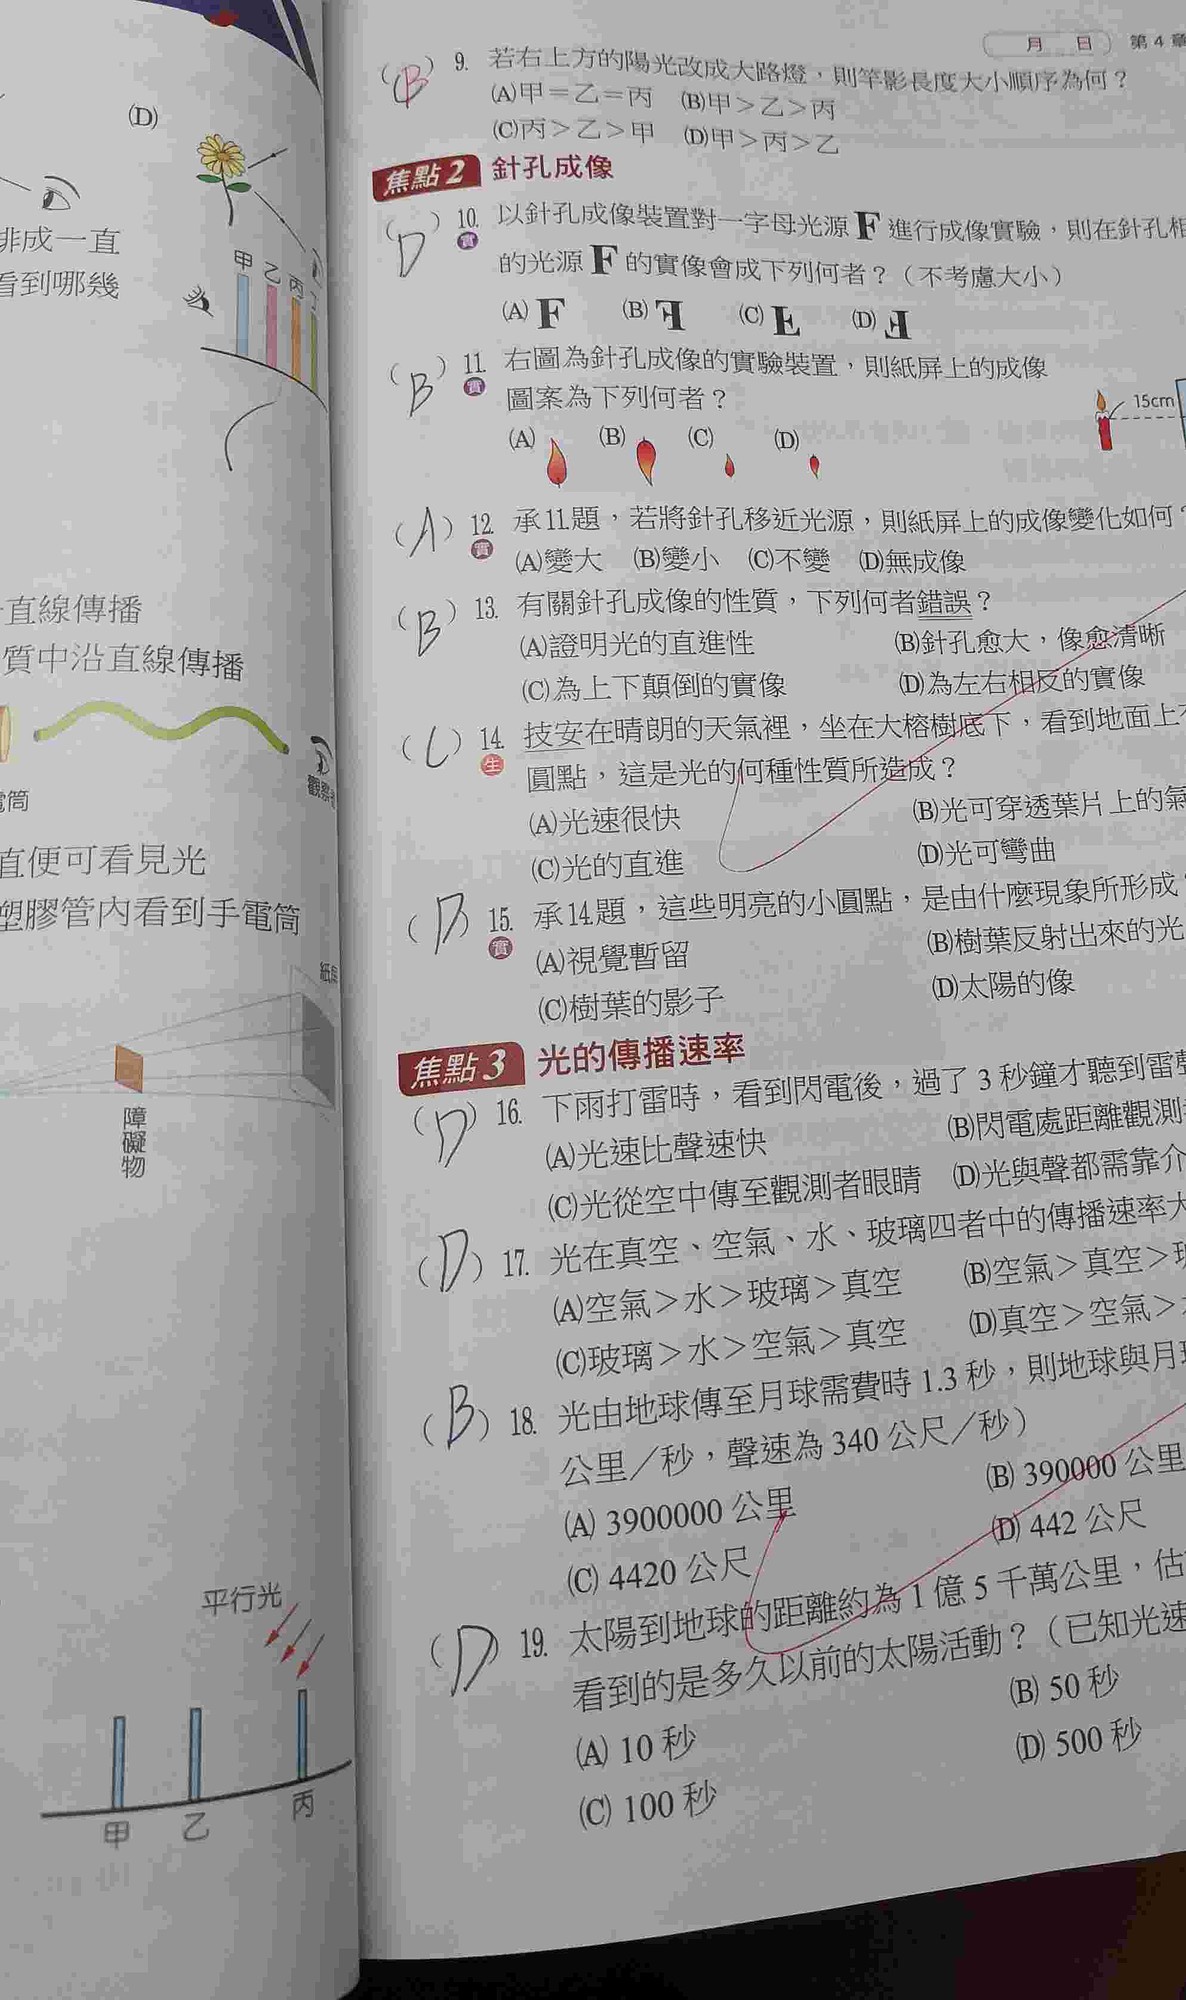 (D)
排成一直
看到哪幾
甲 乙 丙 丁
直線傳播
質中沿直線傳播
觀察者
電筒
直便可看見光
塑膠管內看到手電筒
紙屏
障礙物
平行光
甲 乙 丙
月 日 第4章
(B) 9. 若右上方的陽光改成大路燈，則竿影長度大小順序為何？
(A)甲＝乙＝丙 (B)甲＞乙＞丙
(C)丙＞乙＞甲 (D)甲＞丙＞乙
焦點2 針孔成像
(D) 10. 以針孔成像裝置對一字母光源 F 進行成像實驗，則在針孔相
實 的光源 F 的實像會成下列何者？（不考慮大小）
(A) F (B) (C) (D)
(B) 11. 右圖為針孔成像的實驗裝置，則紙屏上的成像
實 圖案為下列何者？
15cm
(A) (B) (C) (D)
(A) 12. 承11.題，若將針孔移近光源，則紙屏上的成像變化如何？
實 (A)變大 (B)變小 (C)不變 (D)無成像
(B) 13. 有關針孔成像的性質，下列何者錯誤？
(A)證明光的直進性 (B)針孔愈大，像愈清晰
(C)為上下顛倒的實像 (D)為左右相反的實像
(C) 14. 技安在晴朗的天氣裡，坐在大榕樹底下，看到地面上
生 圓點，這是光的何種性質所造成？
(A)光速很快 (B)光可穿透葉片上的氣
(C)光的直進 (D)光可彎曲
(D) 15. 承14.題，這些明亮的小圓點，是由什麼現象所形成？
實 (A)視覺暫留 (B)樹葉反射出來的光
(C)樹葉的影子 (D)太陽的像
焦點3 光的傳播速率
(D) 16. 下雨打雷時，看到閃電後，過了 3 秒鐘才聽到雷聲
(A)光速比聲速快 (B)閃電處距離觀測
(C)光從空中傳至觀測者眼睛 (D)光與聲都需靠介
(D) 17. 光在真空、空氣、水、玻璃四者中的傳播速率大
(A)空氣＞水＞玻璃＞真空 (B)空氣＞真空＞玻
(C)玻璃＞水＞空氣＞真空 (D)真空＞空氣＞
(B) 18. 光由地球傳至月球需費時 1.3 秒，則地球與月球
公里／秒，聲速為 340 公尺／秒）
(A) 3900000 公里 (B) 390000 公里
(C) 4420 公尺 (D) 442 公尺
(D) 19. 太陽到地球的距離約為 1 億 5 千萬公里，估
看到的是多久以前的太陽活動？（已知光速
(A) 10 秒 (B) 50 秒
(C) 100 秒 (D) 500 秒